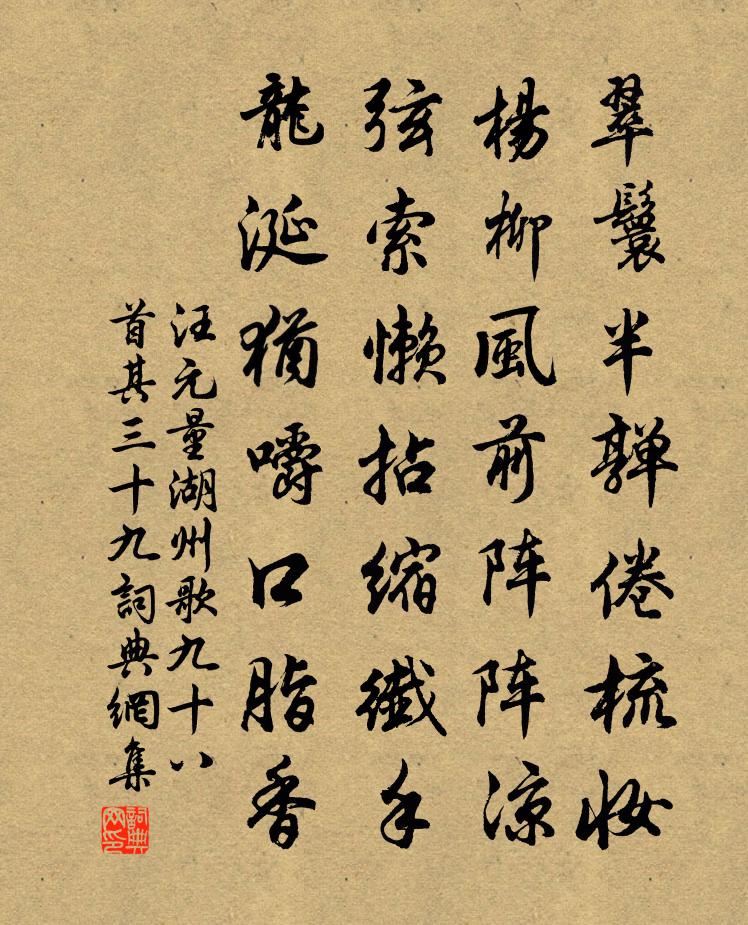 翠鬟半亸倦梳妆
楊柳風前阵阵凉
弦索懒拈缩纖手
龍涎猶嚼口脂香
汪元量湖州歌九十八
首其三十九詞典網集
詞典网印